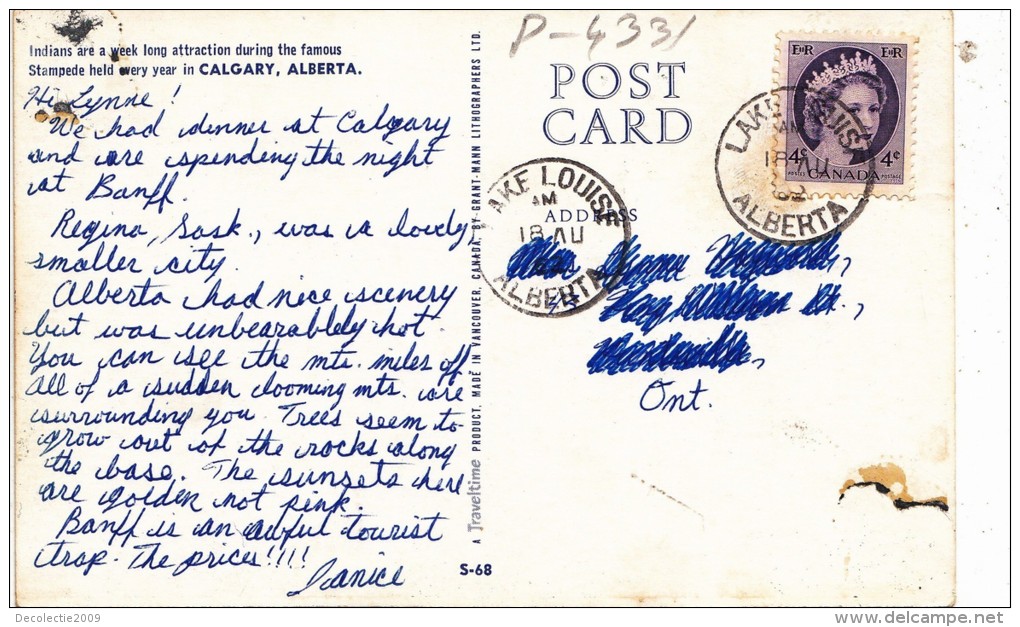 P-4331
Indians are a week long attraction during the famous
Stampede held every year in CALGARY, ALBERTA.
Hi Lynne!
We had dinner at Calgary
and are spending the night
at Banff.
Regina, Sask., was a lovely
smaller city.
Alberta had nice scenery
but was unbearablely hot.
You can see the mts. miles off
all of a sudden looming mts. are
surrounding you. Trees seem to
grow out of the rocks along
the base. The sunsets here
are golden not pink.
Banff is an awful tourist
trap. The prices!!!!
Janice
A Traveltime PRODUCT, MADE IN VANCOUVER, CANADA, BY GRANT-MANN LITHOGRAPHERS LTD.
S-68
POST
CARD
ADDRESS
LAKE LOUISE
AM
18 AU
ALBERTA
EIIR EIIR
4¢ 4¢
POSTES POSTAGE
CANADA
LAKE LOUISE
AM
18 AU
62
ALBERTA
Ont.
Decolectie2009
delcampe.net